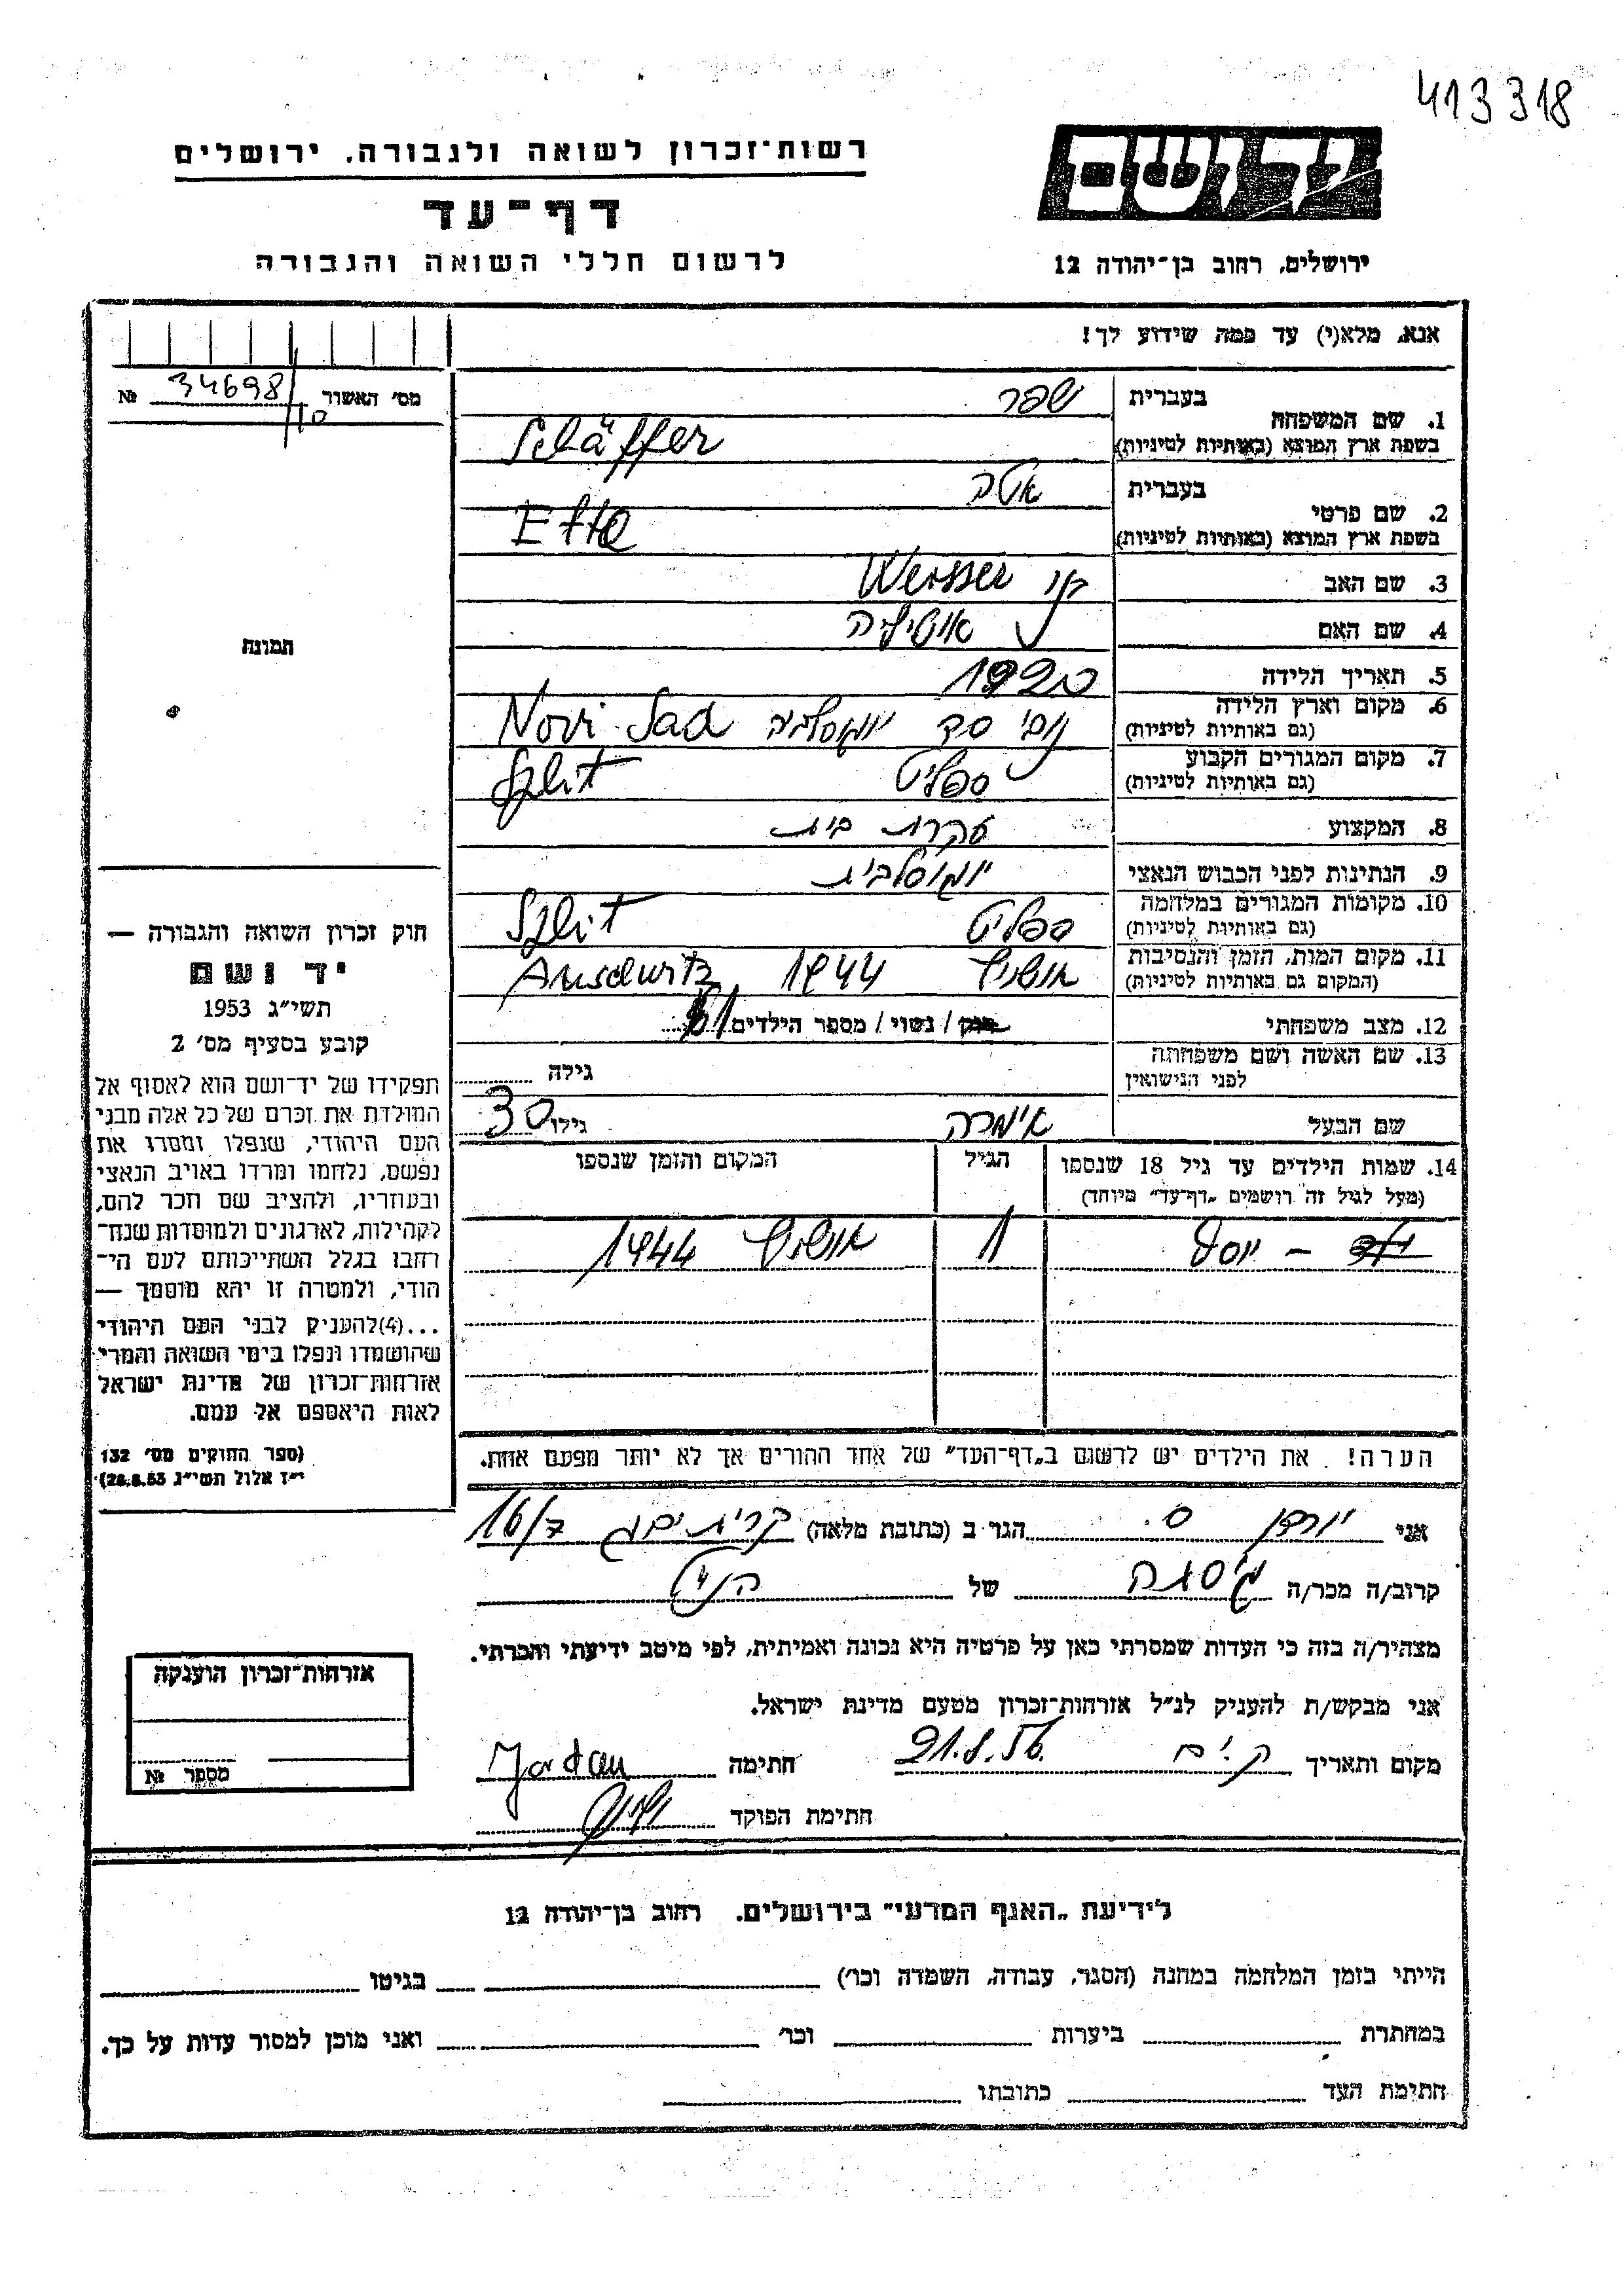 413318
רשות־זכרון לשואה ולגבורה, ירושלים
יד ושם
דף־עד
לרשום חללי השואה והגבורה
ירושלים, רחוב בן־יהודה 12
אנא, מלא(י) עד כמה שידוע לך!
מס׳ האשור 34698/10 №
1. שם המשפחה
בעברית שפר
בשפת ארץ המוצא (באותיות לטיניות) Schäffer
2. שם פרטי
בעברית אטה
בשפת ארץ המוצא (באותיות לטיניות) Etta
3. שם האב Weisser
4. שם האם אוטיליה
5. תאריך הלידה 1920
6. מקום וארץ הלידה
(גם באותיות לטיניות) נובי סד יוגוסלביה Novi Sad
7. מקום המגורים הקבוע
(גם באותיות לטיניות) ספליט Split
8. המקצוע עקרת בית
9. הנתינות לפני הכבוש הנאצי יוגוסלבית
10. מקומות המגורים במלחמה
(גם באותיות לטיניות) ספליט Split
11. מקום המות, הזמן והנסיבות
(המקום גם באותיות לטיניות) אושויץ 1944 Auschwitz
12. מצב משפחתי רוק / נשוי / מספר הילדים 1
13. שם האשה ושם משפחתה
לפני הנישואין
גילה
שם הבעל אימרה גילו 30
14. שמות הילדים עד גיל 18 שנספו
(מעל לגיל זה רושמים „דף־עד” מיוחד)
הגיל
המקום והזמן שנספו
יוסף 1 אושויץ 1944
הערה! את הילדים יש לרשום ב„דף־העד” של אחד ההורים אך לא יותר מפעם אחת.
תמונה
חוק זכרון השואה והגבורה —
יד ושם
תשי״ג 1953
קובע בסעיף מס׳ 2
תפקידו של יד־ושם הוא לאסוף אל
המולדת את זכרם של כל אלה מבני
העם היהודי, שנפלו ומסרו את
נפשם, נלחמו ומרדו באויב הנאצי
ובעוזריו, ולהציב שם וזכר להם,
לקהילות, לארגונים ולמוסדות שנח־
רבו בגלל השתייכותם לעם הי־
הודי, ולמטרה זו יהא מוסמך —
...(4) להעניק לבני העם היהודי
שהושמדו ונפלו בימי השואה והמרי
אזרחות־זכרון של מדינת ישראל
לאות היאספם אל עמם.
(ספר החוקים מס׳ 132
י״ז אלול תשי״ג 28.8.53)
אני יורדן ס. הגר ב (כתובת מלאה) קרית ים ג 16/7
קרוב/ה מכר/ה גיסה של הנ״ל
מצהיר/ה בזה כי העדות שמסרתי כאן על פרטיה היא נכונה ואמיתית, לפי מיטב ידיעתי והכרתי.
אני מבקש/ת להעניק לנ״ל אזרחות־זכרון מטעם מדינת ישראל.
מקום ותאריך ק. ים 21.8.56 חתימה Jordan
חתימת הפוקד
אזרחות־זכרון הוענקה
מספר №
לידיעת „האגף המדעי” בירושלים. רחוב בן־יהודה 12
הייתי בזמן המלחמה במחנה (הסגר, עבודה, השמדה וכו׳) בגיטו
במחתרת ביערות וכו׳ ואני מוכן למסור עדות על כך.
חתימת העד כתובתו